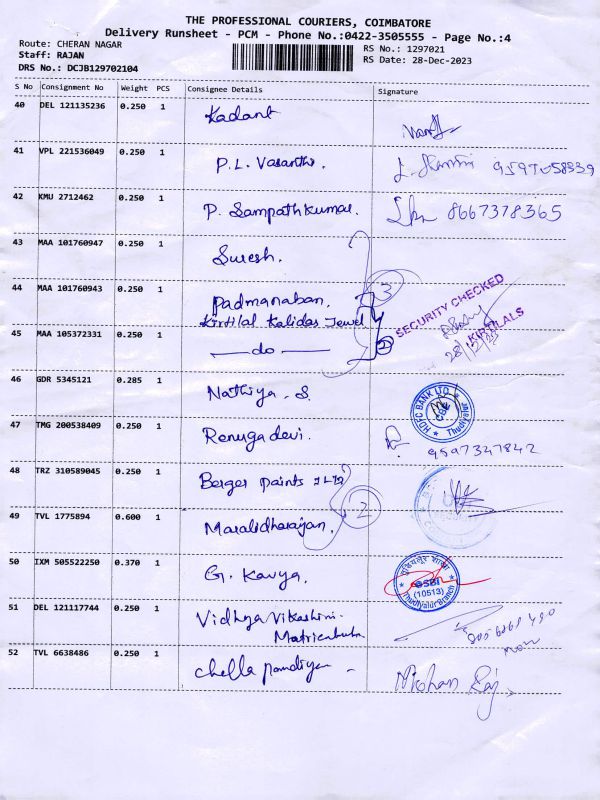 THE PROFESSIONAL COURIERS, COIMBATORE
Delivery Runsheet - PCM - Phone No.:0422-3505555 - Page No.:4
Route: CHERAN NAGAR RS No.: 1297021
Staff: RAJAN RS Date: 28-Dec-2023
DRS No.: DCJB129702104
S No Consignment No Weight PCS Consignee Details Signature
40 DEL 121135236 0.250 1 Kadant
41 VPL 221536049 0.250 1 P.L. Vasanthi. 9597058939
42 KMU 2712462 0.250 1 P. Sampathkumar. 8667378365
43 MAA 101760947 0.250 1 Suresh.
44 MAA 101760943 0.250 1 Padmanaban. 3
Kirtilal Kalidas Jewel
SECURITY CHECKED
KIRTILALS
28/12/23
45 MAA 105372331 0.250 1 — do — 2
46 GDR 5345121 0.285 1 Nathiya. S.
HDFC BANK LTD CBE Thudiyalur
47 TMG 200538409 0.250 1 Renugadevi. 9597347842
48 TRZ 310589045 0.250 1 Berger paints
49 TVL 1775894 0.600 1 2
50 IXM 505522250 0.370 1 G. Kavya.
SBI
(10513)
Thudiyalur Branch
51 DEL 121117744 0.250 1 Vidhya Vikashini.
52 TVL 6638486 0.250 1 Chella pandiyan Mohan Raj.